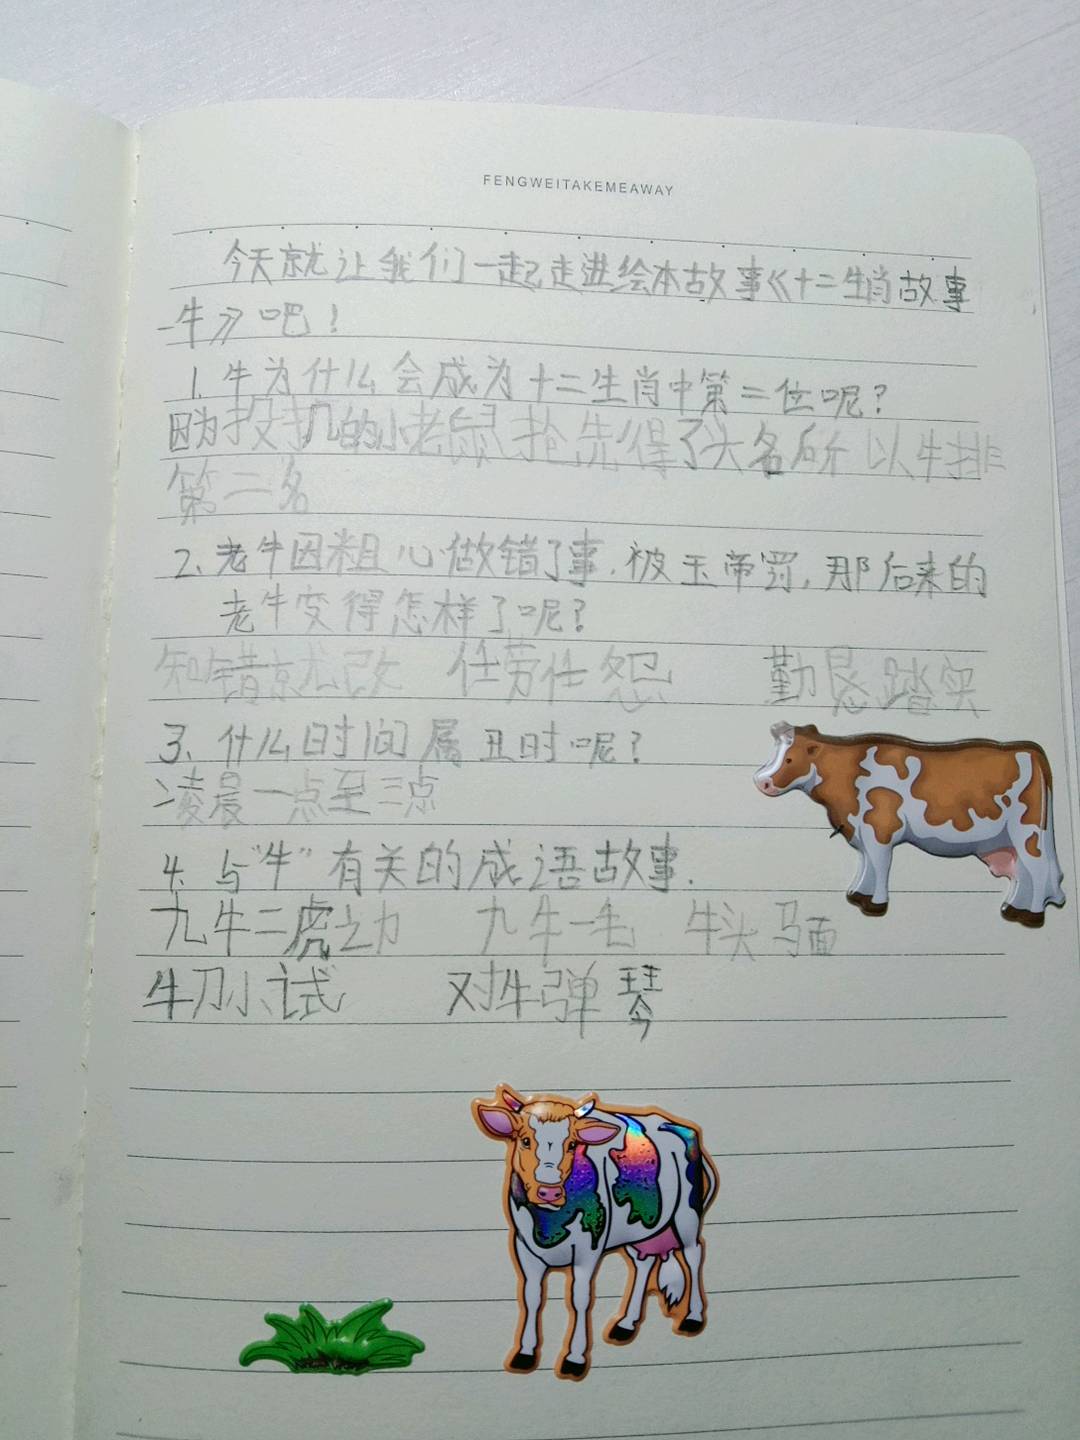 FENGWEITAKEMEAWAY
今天就让我们一起走进绘本故事《十二生肖故事
-牛》吧！
1、牛为什么会成为十二生肖中第二位呢？
因为投机的小老鼠抢先得了头名所以牛排
第二名
2、老牛因粗心做错了事，被玉帝罚，那后来的
老牛变得怎样了呢？
知错就改 任劳任怨 勤恳踏实
3、什么时间属丑时呢？
凌晨一点至三点
4、与“牛”有关的成语故事.
九牛二虎之力 九牛一毛 牛头马面
牛刀小试 对牛弹琴